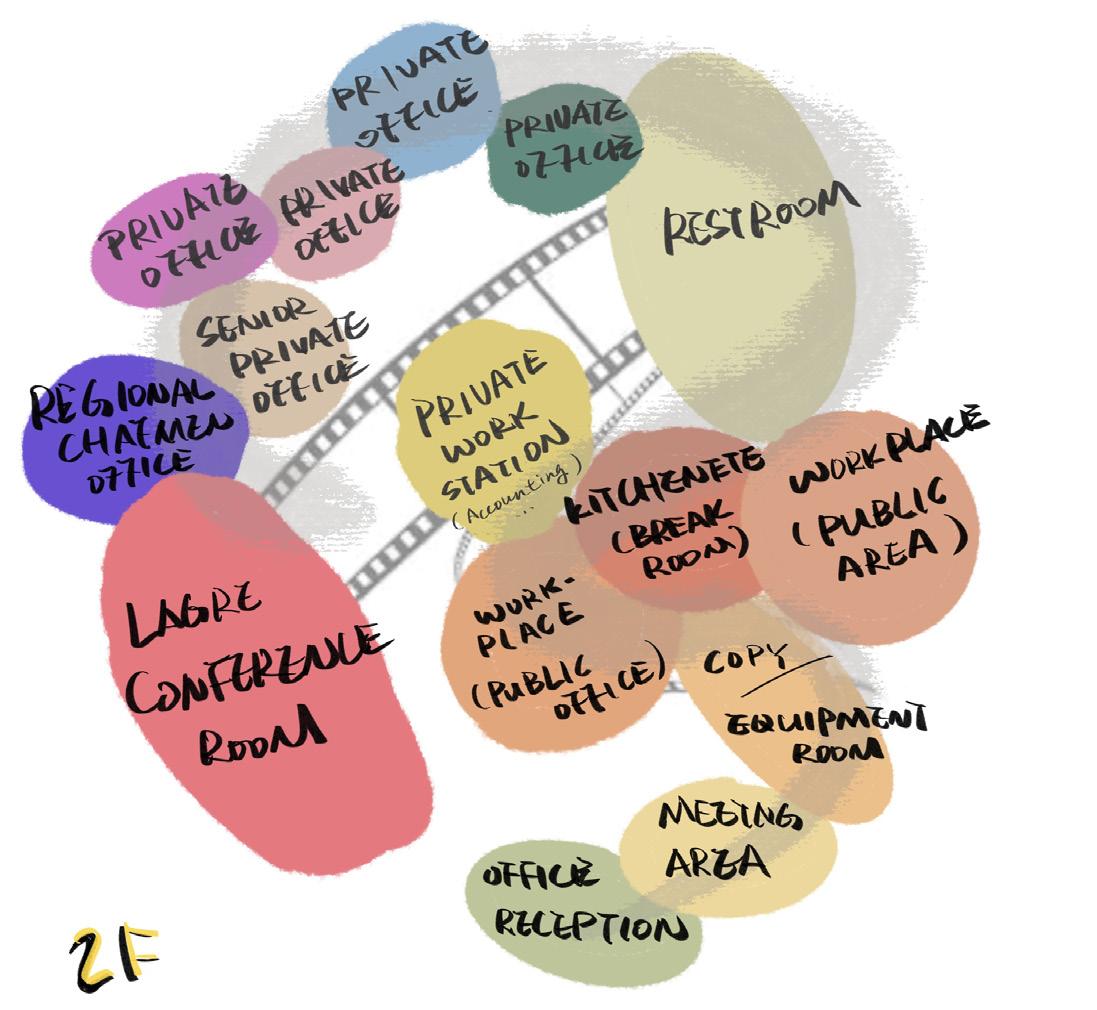 PRIVATE
OFFICE
PRIVATE
OFFICE
PRIVATE
OFFICE
PRIVATE
OFFICE
RESTROOM
SENIOR
PRIVATE
OFFICE
REGIONAL
CHAIMEN
OFFICE
PRIVATE
WORK
STATION
(Accounting)
...
KITCHENETE
(BREAK
ROOM)
WORKPLACE
(PUBLIC
AREA)
LAGRE
CONFERENCE
ROOM
WORK-
PLACE
(PUBLIC
OFFICE)
COPY/
EQUIPMENT
ROOM
MEETING
AREA
OFFICE
RECEPTION
2F